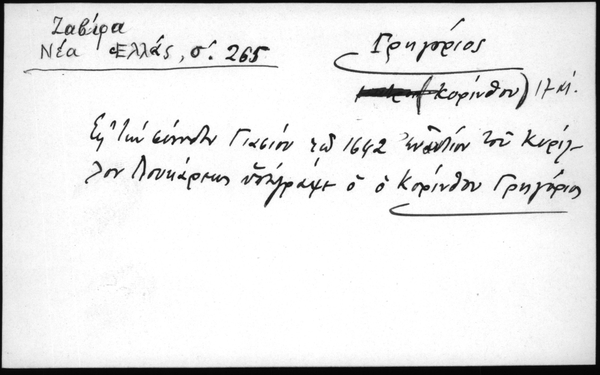 Ζαβίρα
Νέα Ἑλλάς, σ. 265
Γρηγόριος
(Κορίνθου) 17 αἰ.
Εἰς τὴν σύνοδον Γιασίου τοῦ 1642 ἐναντίον τοῦ Κυρίλ-
λου Λουκάρεως ὑπέγραψε ὁ ὁ Κορίνθου Γρηγόριος